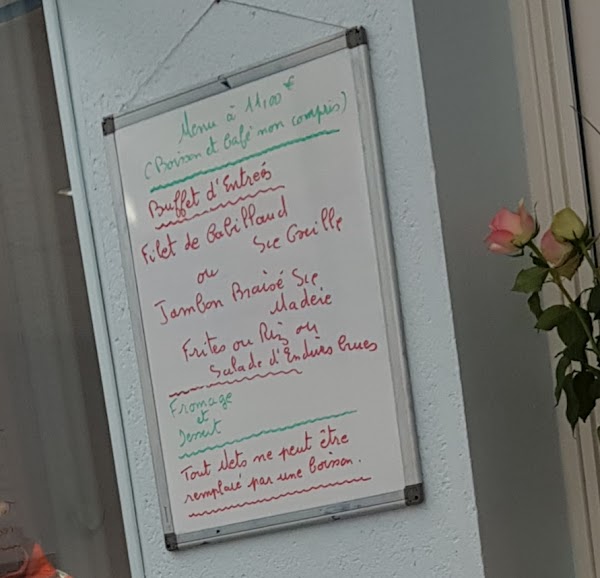 Menu à 11,00 €
(Boisson et Café non compris)
Buffet d'Entrées
Filet de Cabillaud
Sce Oseille
ou
Jambon Braisé Sce
Madère
Frites ou Riz ou
Salade d'Endives Crues
Fromage
et
Dessert
Tout Mets ne peut être
remplacé par une boisson.